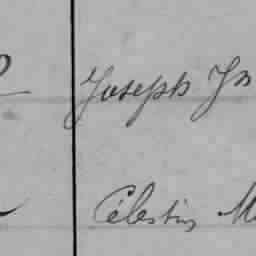 Joseph Jn
Célestin M